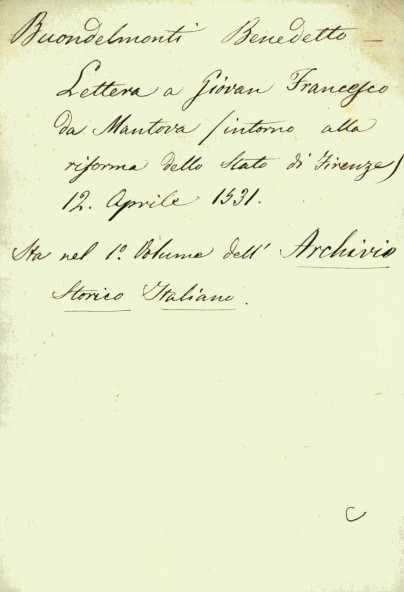 Buondelmonti Benedetto —
Lettera a Giovan Francesco
da Mantova /intorno alla
riforma dello Stato di Firenze/
12. Aprile 1531.
Sta nel 1.º Volume dell' Archivio
Storico Italiano.
C